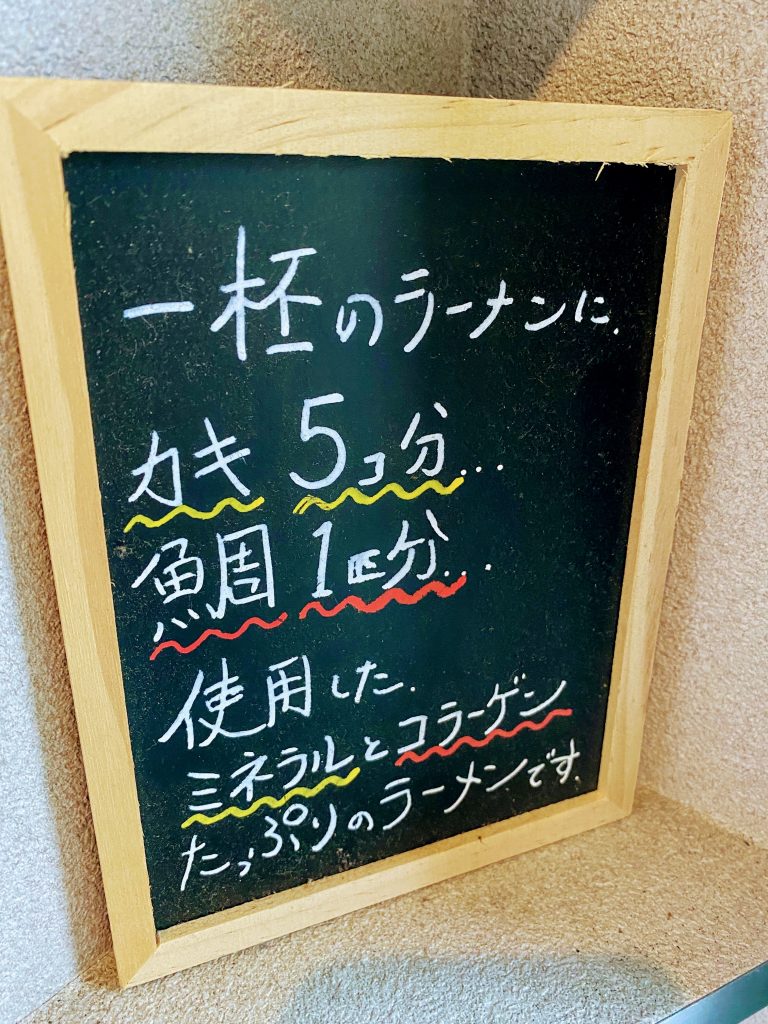 一杯のラーメンに、
カキ 5コ分...
鯛 1匹分...
使用した、
ミネラルとコラーゲン
たっぷりのラーメンです。